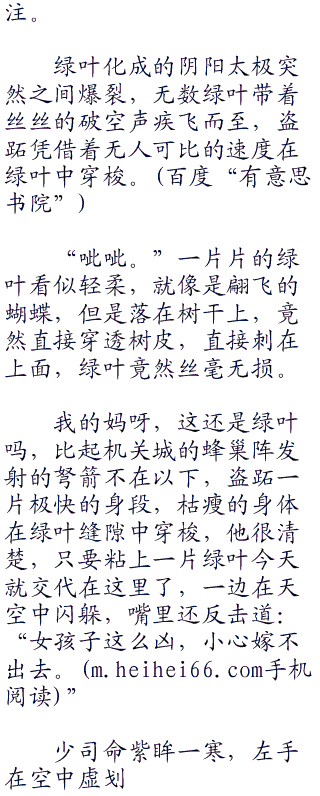 注。
绿叶化成的阴阳太极突
然之间爆裂，无数绿叶带着
丝丝的破空声疾飞而至，盗
跖凭借着无人可比的速度在
绿叶中穿梭。(百度“有意思
书院”)
“呲呲。”一片片的绿
叶看似轻柔，就像是翩飞的
蝴蝶，但是落在树干上，竟
然直接穿透树皮，直接刺在
上面，绿叶竟然丝毫无损。
我的妈呀，这还是绿叶
吗，比起机关城的蜂巢阵发
射的弩箭不在以下，盗跖一
片极快的身段，枯瘦的身体
在绿叶缝隙中穿梭，他很清
楚，只要粘上一片绿叶今天
就交代在这里了，一边在天
空中闪躲，嘴里还反击道：
“女孩子这么凶，小心嫁不
出去。(m.heihei66.com手机
阅读)”
少司命紫眸一寒，左手
在空中虚划